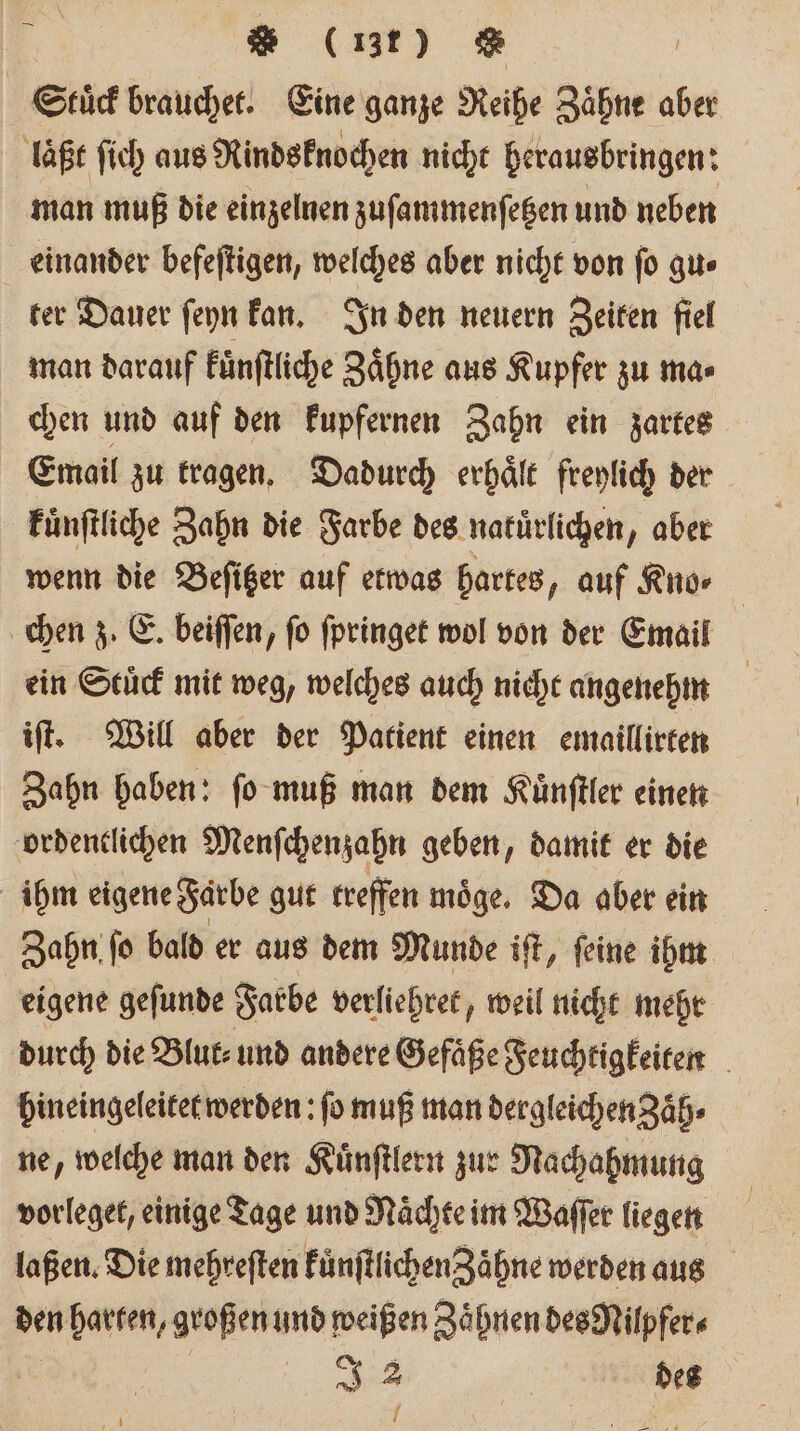 ❀ (131) ❀
Stuͤck brauchet. Eine ganze Reihe Zaͤhne aber
laͤßt ſich aus Rindsknochen nicht herausbringen:
man muß die einzelnen zuſammenſetzen und neben
einander befeſtigen, welches aber nicht von ſo gu⸗
ter Dauer ſeyn kan. In den neuern Zeiten fiel
man darauf kuͤnſtliche Zaͤhne aus Kupfer zu ma⸗
chen und auf den kupfernen Zahn ein zartes
Email zu tragen. Dadurch erhaͤlt freylich der
kuͤnſtliche Zahn die Farbe des natuͤrlichen, aber
wenn die Beſitzer auf etwas hartes, auf Kno⸗
chen z. E. beiſſen, ſo ſpringet wol von der Email
ein Stuͤck mit weg, welches auch nicht angenehm
iſt. Will aber der Patient einen emaillirten
Zahn haben: ſo muß man dem Kuͤnſtler einen
ordentlichen Menſchenzahn geben, damit er die
ihm eigene Farbe gut treffen moͤge. Da aber ein
Zahn ſo bald er aus dem Munde iſt, ſeine ihm
eigene geſunde Farbe verliehret, weil nicht mehr
durch die Blut⸗ und andere Gefaͤße Feuchtigkeiten
hineingeleitet werden: ſo muß man dergleichen Zaͤh⸗
ne, welche man den Kuͤnſtlern zur Nachahmung
vorleget, einige Tage und Naͤchte im Waſſer liegen
laßen. Die mehreſten kuͤnſtlichen Zaͤhne werden aus
den harten, großen und weißen Zaͤhnen des Nilpfer⸗
J 2 des